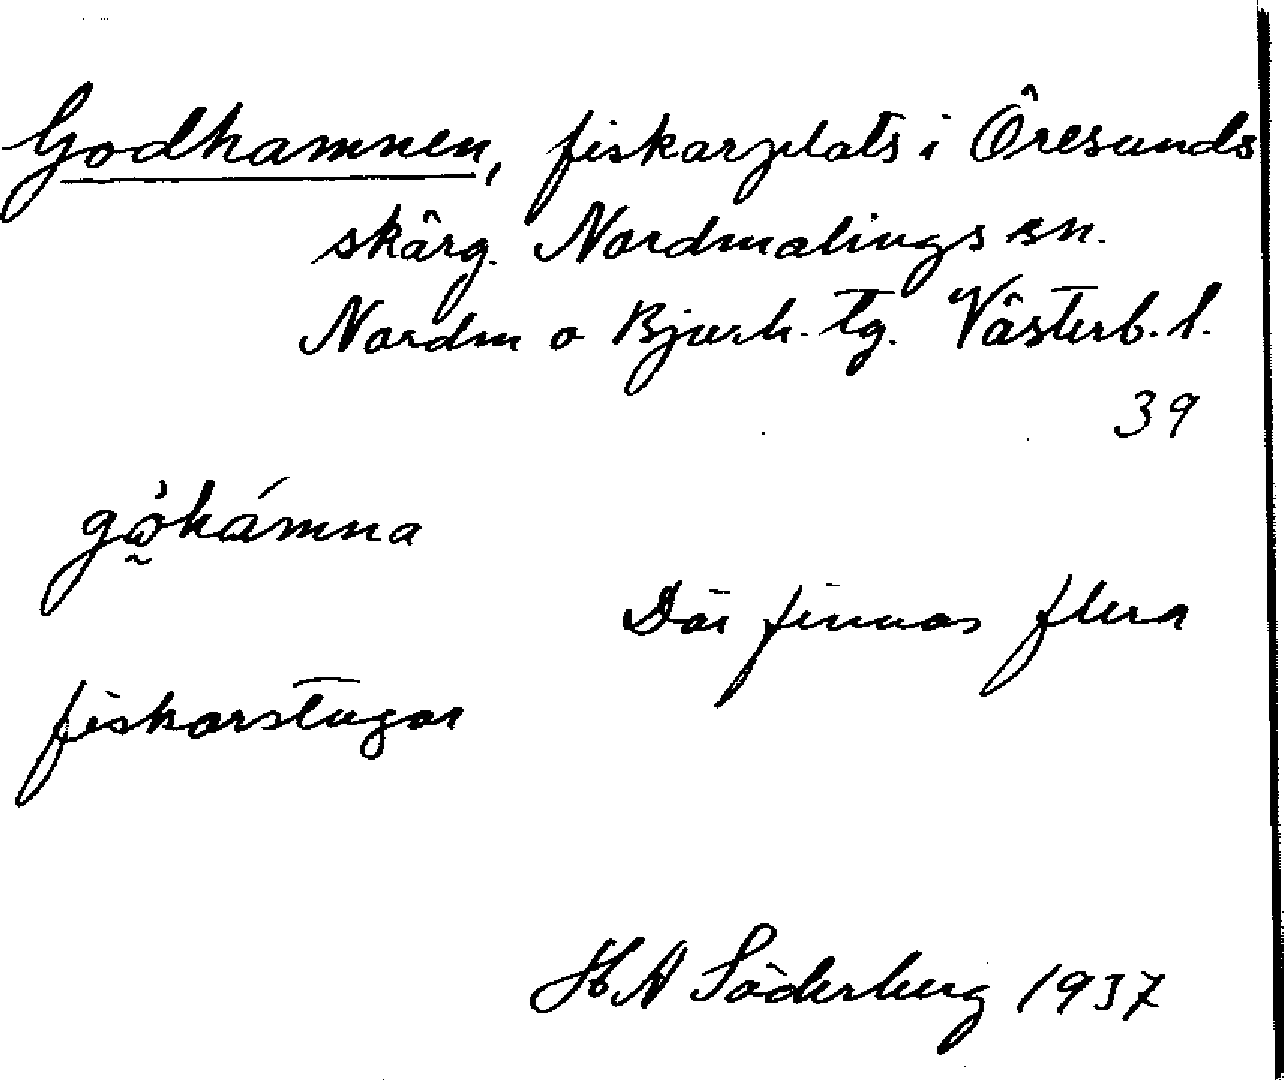 Godhamnen, fiskarplats i Öresunds
skärg. Nordmalings sn.
Nordm o Bjurh. tg. Västerb. l.
39
Där finnas flera
fiskarstugor
H A Söderberg 1937